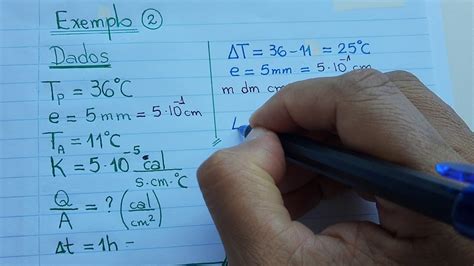 Exemplo ②
Dados
T_P = 36°C
e = 5mm = 5·10⁻¹cm
T_A = 11°C
K = 5·10⁻⁵ cal
s·cm·°C
Q/A = ? (cal/cm²)
Δt = 1h =
ΔT = 36 - 11 = 25°C
e = 5mm = 5·10⁻¹cm
m dm cm